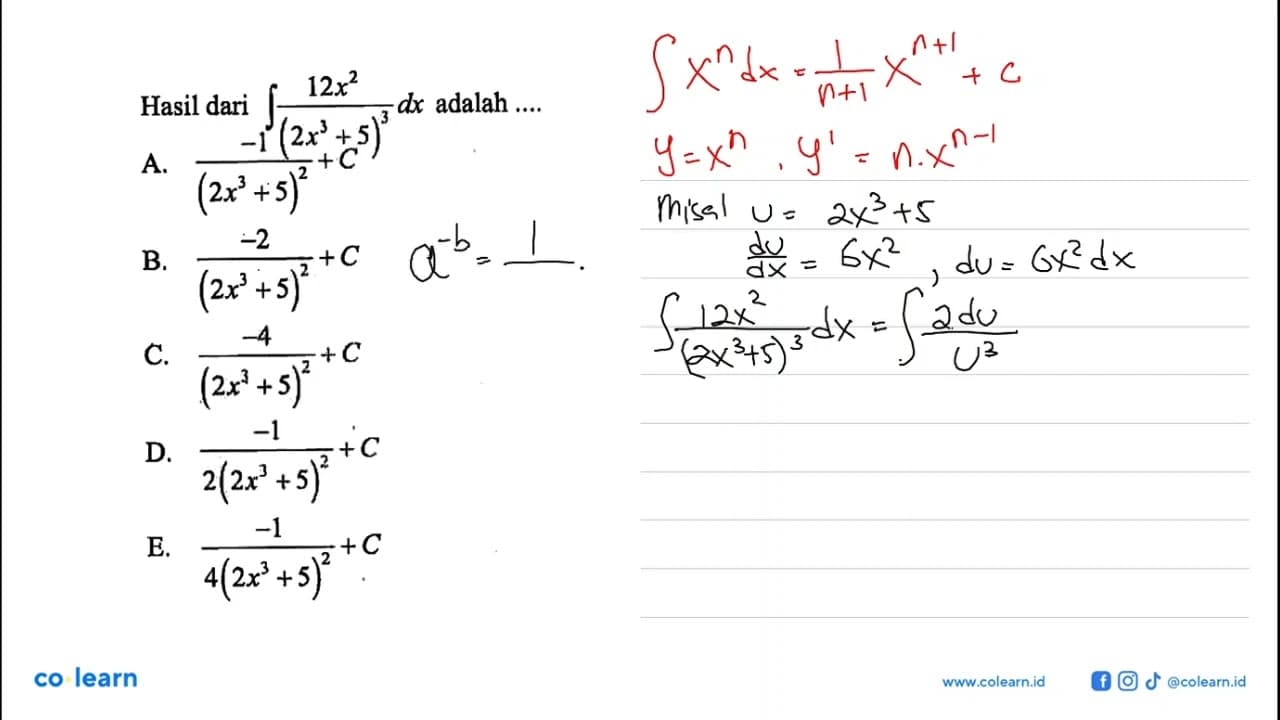 Hasil dari ∫ 12x² / (2x³ + 5)³ dx adalah ....
A. -1 / (2x³ + 5)² + C
B. -2 / (2x³ + 5)² + C
C. -4 / (2x³ + 5)² + C
D. -1 / 2(2x³ + 5)² + C
E. -1 / 4(2x³ + 5)² + C
a^-b = 1 / .
∫ x^n dx = 1/(n+1) x^(n+1) + c
y = x^n , y' = n.x^(n-1)
Misal U = 2x³+5
du/dx = 6x² , du = 6x² dx
∫ 12x² / (2x³+5)³ dx = ∫ 2du / U³
co learn
www.colearn.id
@colearn.id